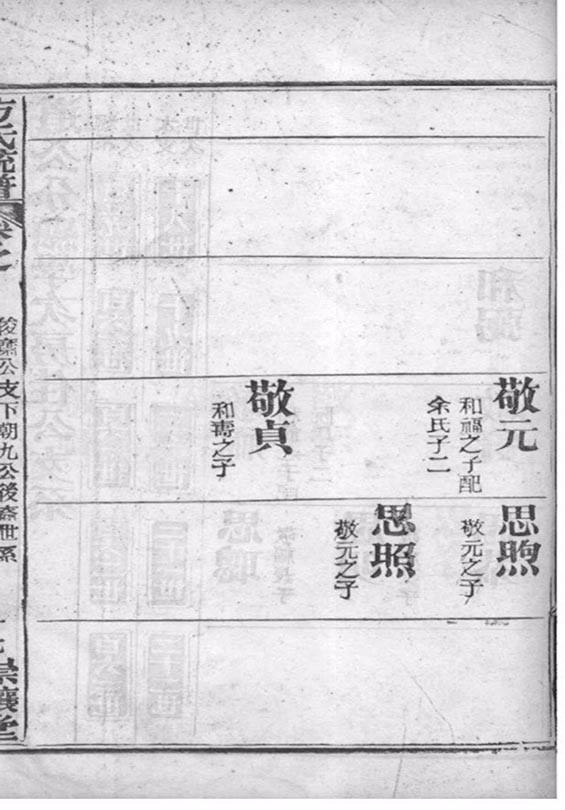 敬元
和福之子配
余氏子二
思煦
敬元之子
思照
敬元之子
敬貞
和壽之子
方氏統譜
支下朝九公後
世系
崇讓堂